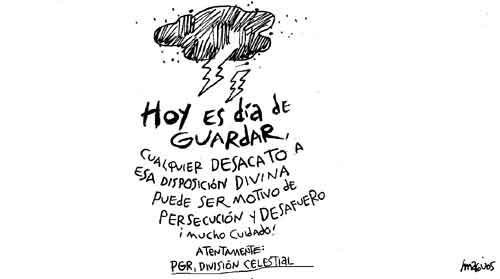 HOY ES día dE
GUARdAR,
CUALQUIER DESACATO A
ESA DISPOSICIÓN DIVINA
PUEDE SER MOTIVO DE
PERSECUCIÓN Y DESAFUERO
¡MUCHO CUIDADO!
ATENTAMENTE:
PGR, DIVISIÓN CELESTIAL
magú05